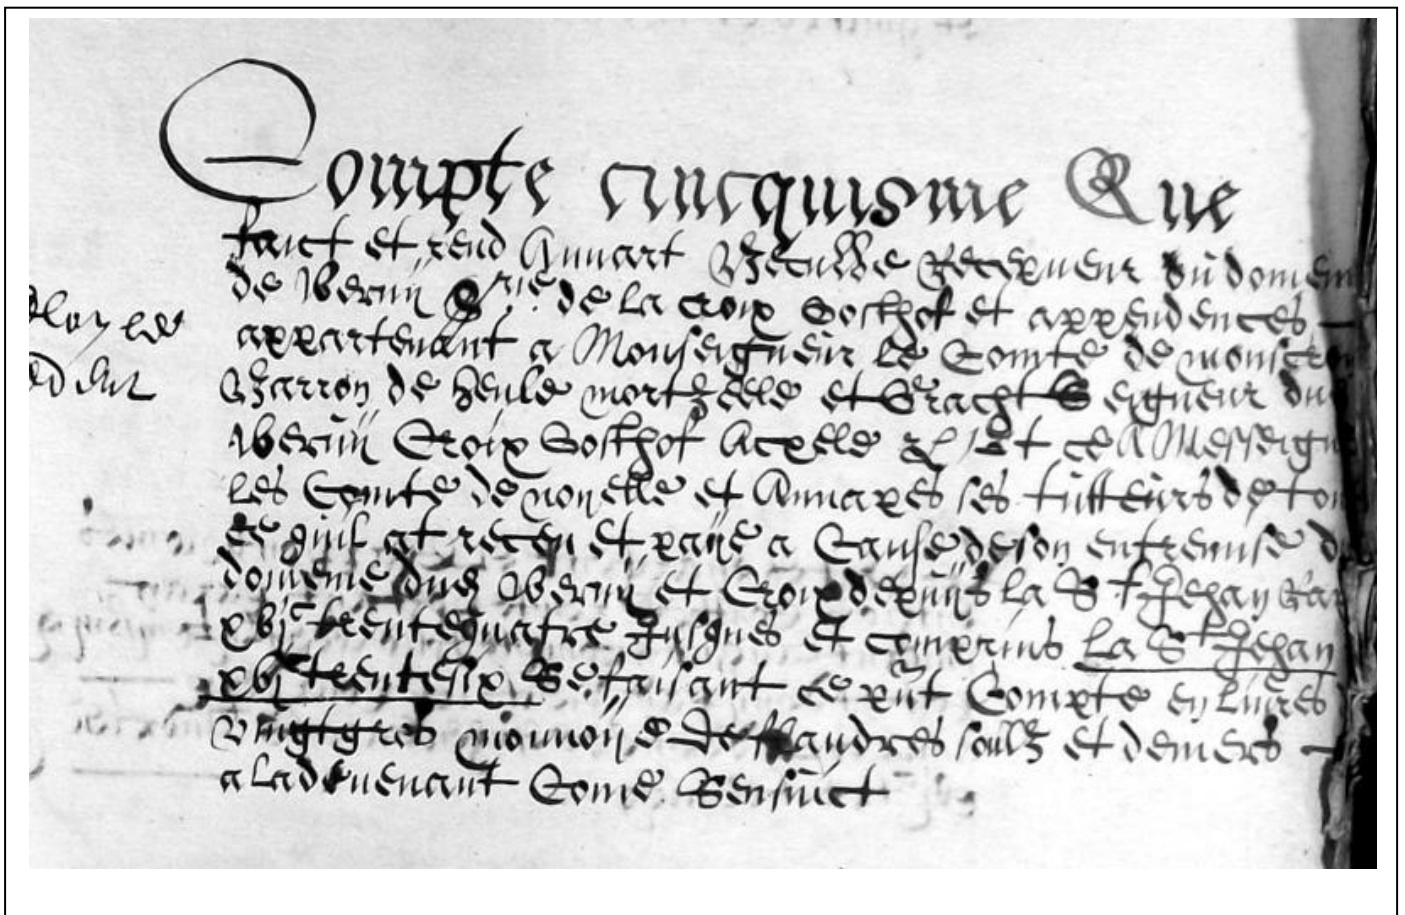 Compte cincquisme Que
faict et rend Annart receveur du domem
de Wervy Srie de la Croix Oosthof et appendences
appartenant a Monseigneur le Comte de
Barron de heule et Seigneur du
Wervy Croix Oosthof Acxelle et ce a Messeign
les Comte de noyelle et Annaxes ses tutteurs de tou
ce quil at receu et paye a Cause de son entremise d
domeine dud Wervy et Croix depuis la St Jehan
xvjc trentequatre jusques et comprins la St Jehan
xvjc trentesix Se faisant ce pnt Compte en livres
vingt gros monnoye de flandres soulz et deniers
a ladvenant Come Sensuict